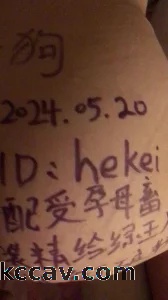 狗
2024.05.20
ID: hekei
配受孕母畜
精给绿王
kccav.com